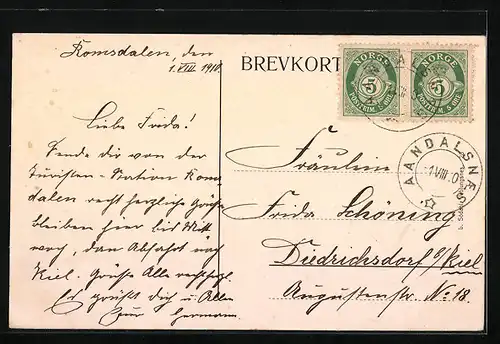 Romsdalen, den
1. VIII. 1910.
Liebe Frida!
Sende dir von der
Touristen-Station Roms
dalen recht herzliche Grüße
bleiben hier bis Mitt
woch, dan Abfahrt nach
Kiel. Grüße Alle
Es grüßt dich u. Alle
Hermann
BREVKORT
NORGE
5
POSTFRIM. 5 ØRE
NORGE
5
POSTFRIM. 5 ØRE
AANDALSNES
1 VIII 10
Fräulein
Frida Schöning
Diedrichsdorf b/Kiel
Augustenstr. No. 18.